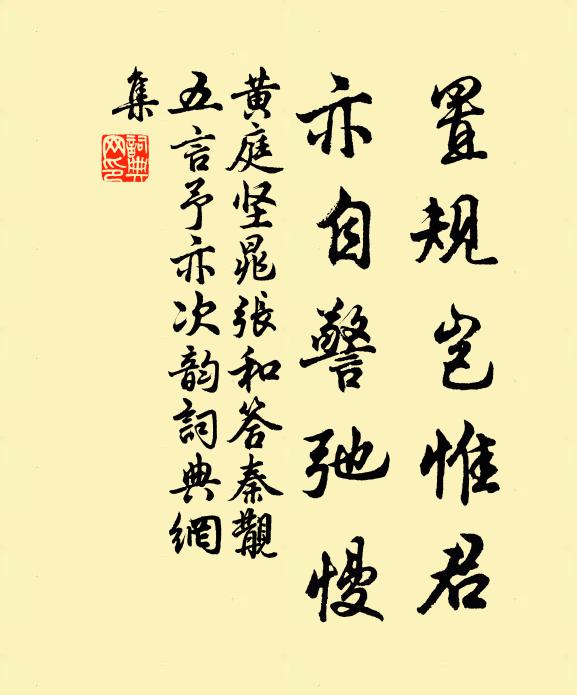 置規豈惟君
亦自警弛慢
黄庭坚晁張和答秦觀
五言予亦次韵詞典網
集
詞典網印